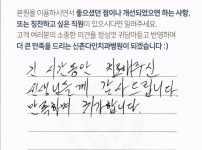 본원을 이용하시면서 좋으셨던 점이나 개선되었으면 하는 사항,
또는 칭찬하고 싶은 직원이 있으시다면 알려주세요.
고객 여러분의 소중한 의견을 정성껏 귀담아듣고 반영하여
더 큰 만족을 드리는 신촌다인치과병원이 되겠습니다 :)
긴 시간동안 치료해주신
선생님들께 감사드립니다
만족하며 귀가합니다